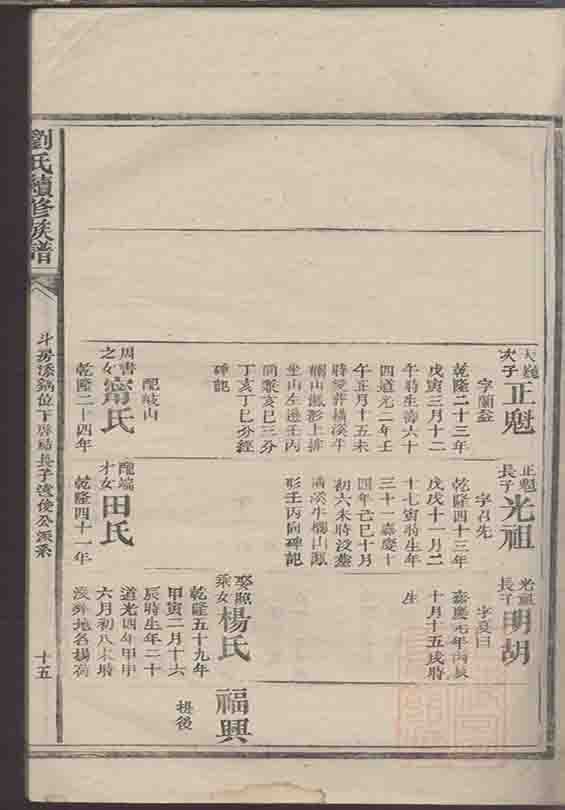 劉氏續修族譜
次子
正魁
字蘭益
乾隆二十三年
戊寅三月十二
午時生壽六十
四道光二年壬
午正月十五未
時歿葬橫溪牛
欄山鳳形上排
坐山左邊壬丙
兼亥巳三分
丁亥丁巳分經
碑記
配岐山
周書
之女
甯氏
乾隆二十四年
正魁
長子
光祖
字君先
乾隆四十三年
戊戌十一月二
十七寅時生年
三十一嘉慶十
四年己巳十月
初六未時歿葬
橫溪牛欄山鳳
形壬丙向碑記
配
才女
田氏
乾隆四十一年
光祖
長子
明胡
嘉慶元年丙辰
十月十五戌時
生
娶熙
乘女
楊氏
乾隆五十九年
甲寅二月十六
辰時生年二十
道光四年甲申
六月初八未時
歿葬地名楊
福興
撫後
十五